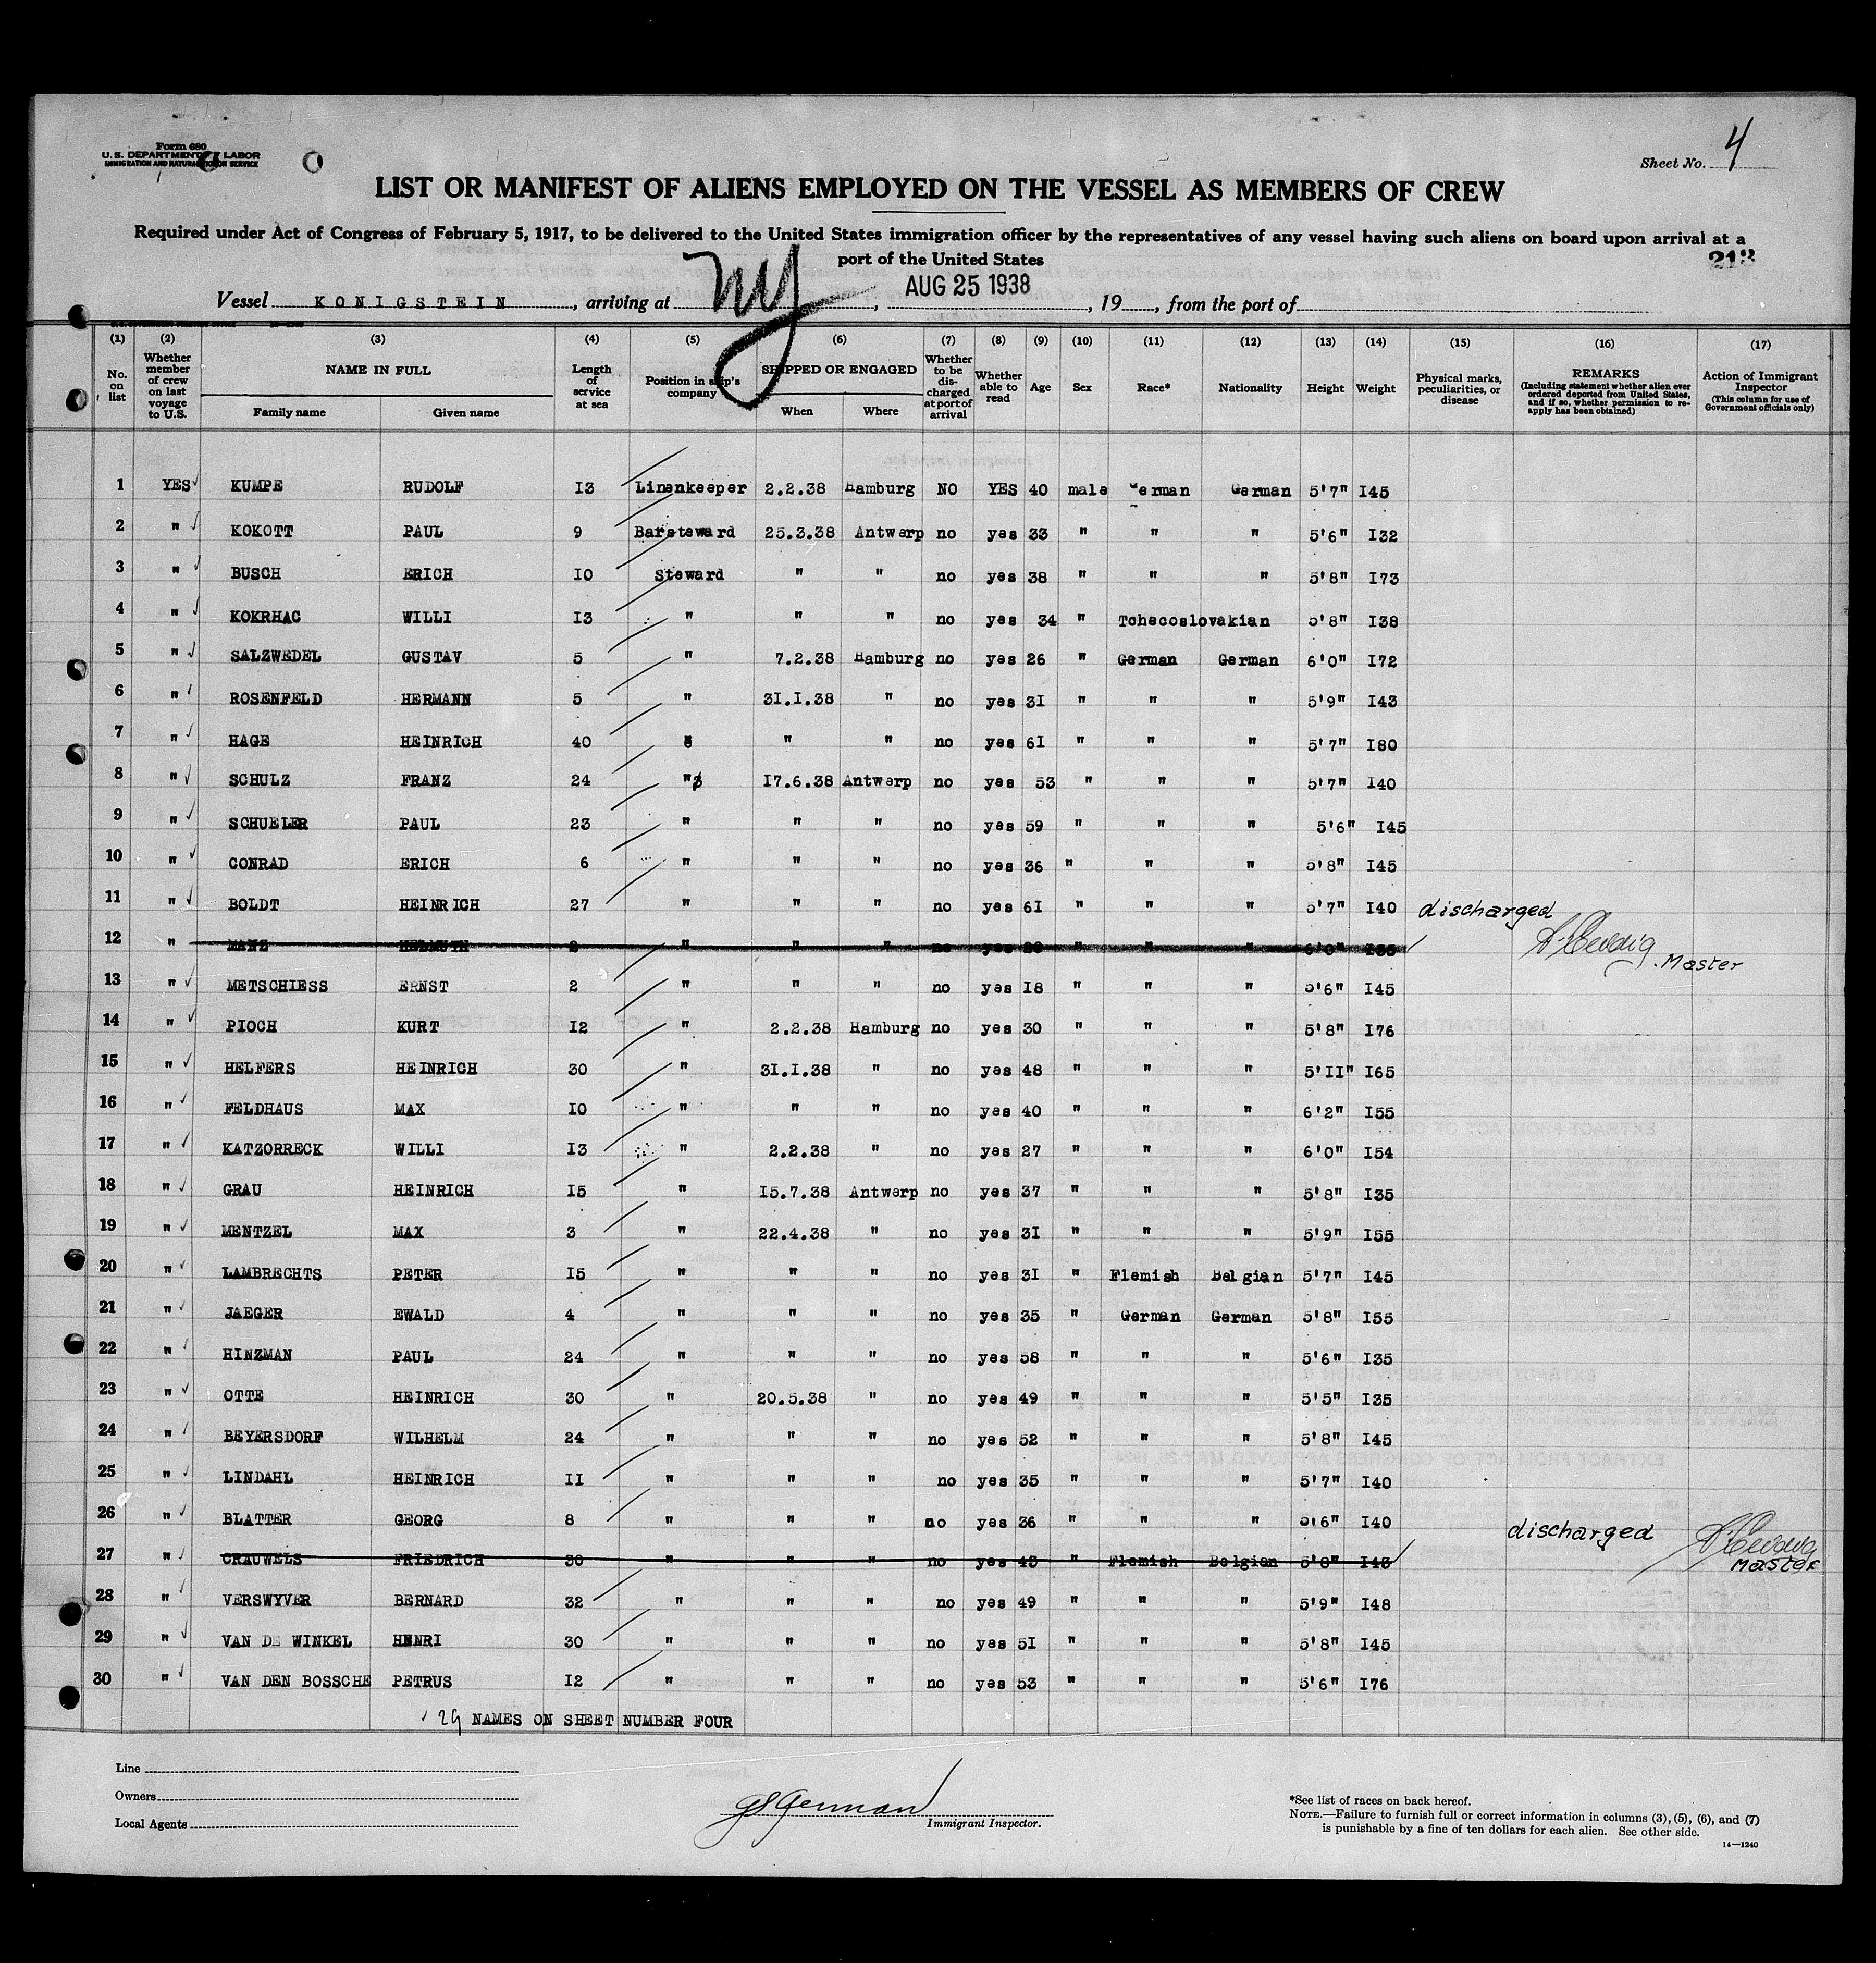 Form 680
U.S. DEPARTMENT OF LABOR
IMMIGRATION AND NATURALIZATION SERVICE
Sheet No. 4
LIST OR MANIFEST OF ALIENS EMPLOYED ON THE VESSEL AS MEMBERS OF CREW
Required under Act of Congress of February 5, 1917, to be delivered to the United States immigration officer by the representatives of any vessel having such aliens on board upon arrival at a
port of the United States
213
Vessel KONIGSTEIN, arriving at NY, AUG 25 1938, 19, from the port of
(1) (2) (3) (4) (5) (6) (7) (8) (9) (10) (11) (12) (13) (14) (15) (16) (17)
No. on list Whether member of crew on last voyage to U.S. NAME IN FULL Family name Given name Length of service at sea Position in ship's company SHIPPED OR ENGAGED When Where Whether to be discharged at port of arrival Whether able to read Age Sex Race* Nationality Height Weight Physical marks, peculiarities, or disease REMARKS (Including statement whether alien ever ordered deported from United States, and if so, whether permission to reapply has been obtained) Action of Immigrant Inspector (This column for use of Government officials only)
1 YES KUMPE RUDOLF I3 Linenkeeper 2.2.38 Hamburg NO YES 40 male German German 5'7" I45
2 " KOKOTT PAUL 9 Barsteward 25.3.38 Antwerp no yes 33 " " " 5'6" I32
3 " BUSCH ERICH IO Steward " " no yes 38 " " " 5'8" I73
4 " KOKRHAC WILLI I3 " " " no yes 34 " Tchecoslovakian 5'8" I38
5 " SALZWEDEL GUSTAV 5 " 7.2.38 Hamburg no yes 26 " German German 6'0" I72
6 " ROSENFELD HERMANN 5 " 3I.I.38 " no yes 3I " " " 5'9" I43
7 " HAGE HEINRICH 40 " " " no yes 6I " " " 5'7" I80
8 " SCHULZ FRANZ 24 " I7.6.38 Antwerp no yes 53 " " " 5'7" I40
9 " SCHUELER PAUL 23 " " " no yes 59 " " " 5'6" I45
10 " CONRAD ERICH 6 " " " no yes 36 " " " 5'8" I45
11 " BOLDT HEINRICH 27 " " " no yes 6I " " " 5'7" I40 discharged
12 " MANZ HELMUTH 2 " " " no yes 20 " " " 6'0" Master
13 " METSCHIESS ERNST 2 " " " no yes I8 " " " 5'6" I45
14 " PIOCH KURT I2 " 2.2.38 Hamburg no yes 30 " " " 5'8" I76
15 " HELFERS HEINRICH 30 " 3I.I.38 " no yes 48 " " " 5'II" I65
16 " FELDHAUS MAX IO " " " no yes 40 " " " 6'2" I55
17 " KATZORRECK WILLI I3 " 2.2.38 " no yes 27 " " " 6'0" I54
18 " GRAU HEINRICH I5 " I5.7.38 Antwerp no yes 37 " " " 5'8" I35
19 " MENTZEL MAX 3 " 22.4.38 " no yes 3I " " " 5'9" I55
20 " LAMBRECHTS PETER I5 " " " no yes 3I " Flemish Belgian 5'7" I45
21 " JAEGER EWALD 4 " " " no yes 35 " German German 5'8" I55
22 " HINZMAN PAUL 24 " " " no yes 58 " " " 5'6" I35
23 " OTTE HEINRICH 30 " 20.5.38 " no yes 49 " " " 5'5" I35
24 " BEYERSDORF WILHELM 24 " " " no yes 52 " " " 5'8" I45
25 " LINDAHL HEINRICH II " " " no yes 35 " " " 5'7" I40
26 " BLATTER GEORG 8 " " " no yes 36 " " " 5'6" I40 discharged
27 " CRAUWELS FRIEDRICH 30 " " " no yes 43 " Flemish Belgian 5'8" I43 Master
28 " VERSWYVER BERNARD 32 " " " no yes 49 " " " 5'9" I48
29 " VAN DE WINKEL HENRI 30 " " " no yes 5I " " " 5'8" I45
30 " VAN DEN BOSSCHE PETRUS I2 " " " no yes 53 " " " 5'6" I76
29 NAMES ON SHEET NUMBER FOUR
Line
Owners
Local Agents
GS German
Immigrant Inspector.
*See list of races on back hereof.
NOTE.—Failure to furnish full or correct information in columns (3), (5), (6), and (7)
is punishable by a fine of ten dollars for each alien. See other side.
14—1240